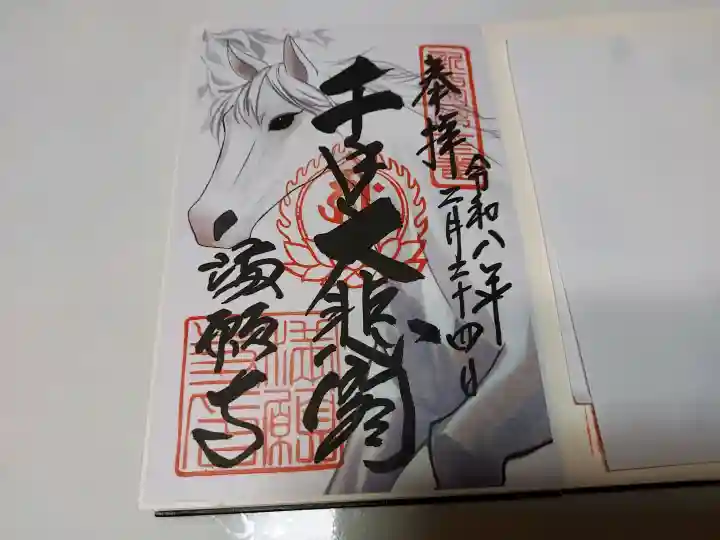 奉拝
令和八年
二月二十四日
千手大悲閣
満願寺